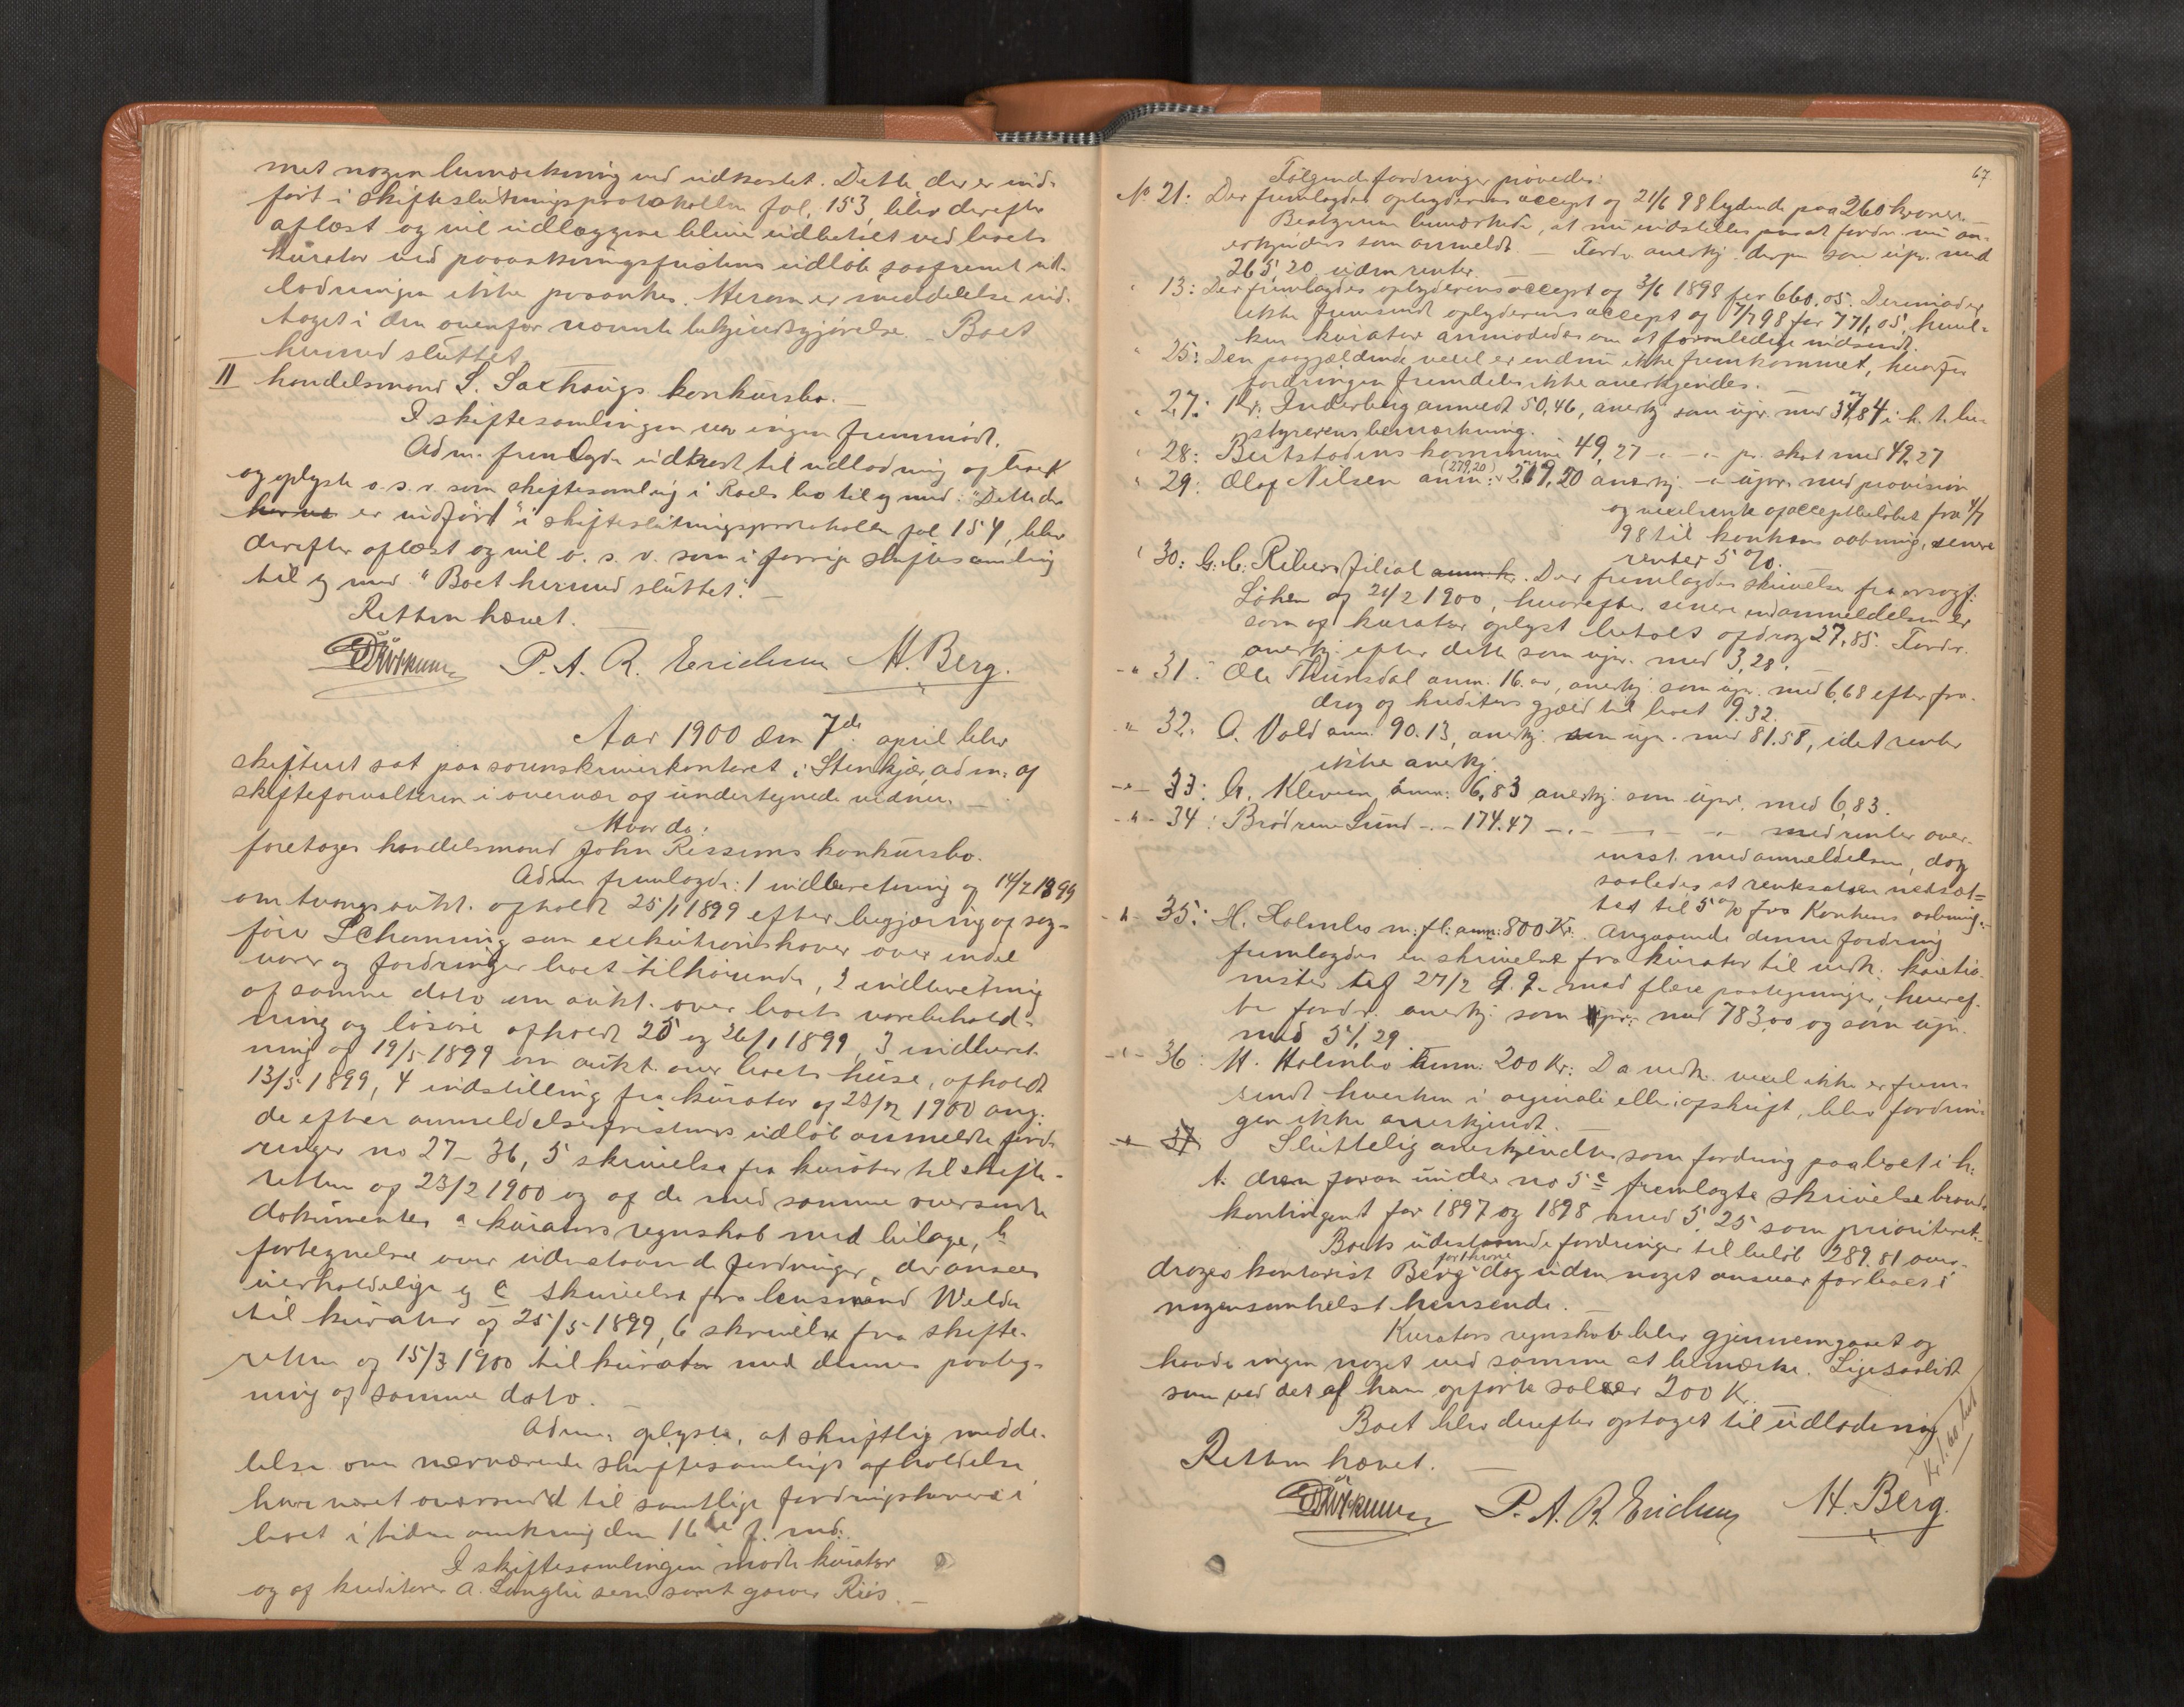 met nogen bemærkning ved udkastet. Dette, der er ind-
ført i skifteslutningsprotokollen fol. 153, blev derefter
aflæst og vil udlæggene blive udbetalt ved boets
kurator ved paaankningsfristens udløb saafremt ud-
lodningen ikke paaankes. Herom er meddelelse ind-
taget i den ovenfor nævnte bekjendtgjørelse. Boet
hermed sluttet.
II handelsmand S. Saxhaugs konkursbo. —
I skiftesamlingen var ingen fremmødt.
Adm. fremlagde udkast til udlodning af boet
og oplyste o. s. v. som skiftesamling i Roels bo til og med: "Dette der
er indført" i skifteslutningsprotokollen fol 154, blev
derefter aflæst og vil o. s. v. som i forrige skiftesamling
til og med "Boet hermed sluttet." —
Retten hævet.
P. A. R. Erichsen M. Berg.
Aar 1900 den 7de april blev
skifteret sat paa sorenskriverkontoret i Stenkjær, adm. af
skifteforvalteren i overvær af undertegnede vidner. —
Hvor da:
foretoges handelsmand John Rissems konkursbo.
Adm fremlagde: 1 indberetning af 14/2 1899
om tvangsaukt. afholdt 25/1 1899 efter begjæring af sag-
fører Schanning som exekutionshaver over endel
varer og fordringer boet tilhørende, 2 indberetning
af samme dato om aukt. over boets varebehold-
ning og løsøre afholdt 25 og 26/1 1899, 3 indberet-
ning af 19/5 1899 om aukt. over boets huse, afholdt
13/5 1899, 4 indstilling fra kurator af 23/2 1900 ang.
de efter anmeldelsesfristens udløb anmeldte ford-
ringer no 27–36, 5 skrivelse fra kurator til skifte-
retten af 23/2 1900 og af de med samme oversendte
dokumenter a kurators regnskab med bilage, b
fortegnelse over udestaaende fordringer, der ansees
uerholdelige og c skrivelse fra lensmand Welde
til kurator af 25/5 1899, 6 skrivelse fra skifte-
retten af 15/3 1900 til kurator med dennes paateg-
ning af samme dato. —
Adm. oplyste, at skriftlig medde-
lelse om nærværende skiftesamlings afholdelse
har været oversendt til samtlige fordringshavere i
boet i tiden omkring den 16de f. md.
I skiftesamlingen mødte kurator
og af kreditorer A. Langli sen samt garver Riis. —
67
Følgende fordringer prøvedes:
No 21: Der fremlagdes opbyderens accept af 21/6 98 lydende paa 260 kroner. —
Bestyreren bemærkede, at nu indstilles paa at fordr. nu an-
erkjendes som anmeldt. — Fordr. anerkj. derpaa som upr. med
265,20 uden renter. —
" 13: Der fremlagdes opbyderens accept af 3/6 1898 for 660.05. Derimod er
ikke fremsendt opbyderens accept af 7/7 98 for 771,05, hvil-
ken kurator anmodedes om at foranledige indsendt.
" 25: Den paagjældende vexel er endnu ikke fremkommet, hvorfor
fordringen fremdeles ikke anerkjendes. —
" 27: Kr. Inderberg anmeldt 50,46, anerkj som upr. med 37,84 i h. t. be-
styrerens bemærkning.
" 28: Beitstadens kommune 49,27 -"- -"- pr. skat med 49,27
" 29: Olaf Nilsen anm: 219,20 (279,20) anerkj. -"- upr. med provision
og vexelrente af acceptbeløbet fra 4/7
98 til konkurs aabning, senere
renter 5 %.
" 30: G. C. Riebers filial anm. kr. Der fremlagdes skrivelse fra orsagf.
Løken af 21/2 1900, hvorefter senere end anmeldelsen er
som af kurator oplyst betalt afdrag 27,85. Fordr.
anerkj. efter dette som upr. med 3,28.
-"- 31: Ole Thunsdal anm. 16.00, anerkj. som upr. med 6,68 efter fra-
drag af kreditors gjæld til boet 9.32.
-"- 32: O. Vold anm. 90.13, anerkj. som upr. med 81.58, idet renter
ikke anerkj.
-"- 33: A. Kleven anm: 6,83 anerkj. som upr. med 6,83.
-"- 34: Brødrene Sund -"- 174.47 -"- -"- -"- med renter over-
ensst. med anmeldelsen, dog
saaledes at rentesatsen nedsat-
tes til 5 % fra Konkurs aabning. —
-"- 35: H. Holmbo m. fl: anm: 800 Kr. Angaaende denne fordring
fremlagdes en skrivelse fra kurator til vedk. kautio-
nister af 27/2 d. å. med flere paategninger, hvoref-
te fordr. anerkj. som pr. med 783,00 og som upr.
med 51,29.
-"- 36: H. Holmbo anm. 200 Kr: Da vedk. vexel ikke er frem-
sendt hverken i original eller i afskrift, blev fordrin-
gen ikke anerkjendt.
-"- 37 Sluttelig anerkjendtes som fordring paa boet i h.
t. den foran under no 5 c fremlagte skrivelse brand-
kontingent for 1897 og 1898 med 5.25 som prioriteret.
Boets udestaaende fordringer til beløb 289.81 over-
droges kontorist Berg forthene dog uden noget ansvar for boet i
nogensomhelst henseende. —
Kurators regnskab blev gjennemgaaet og
havde ingen noget ved samme at bemærke. Ligesaalidt
som ved det af ham opførte salær 200 Kr.
Boet blev derefter optaget til udlodning
Retten hævet. —
P. A. R. Erichsen M. Berg.